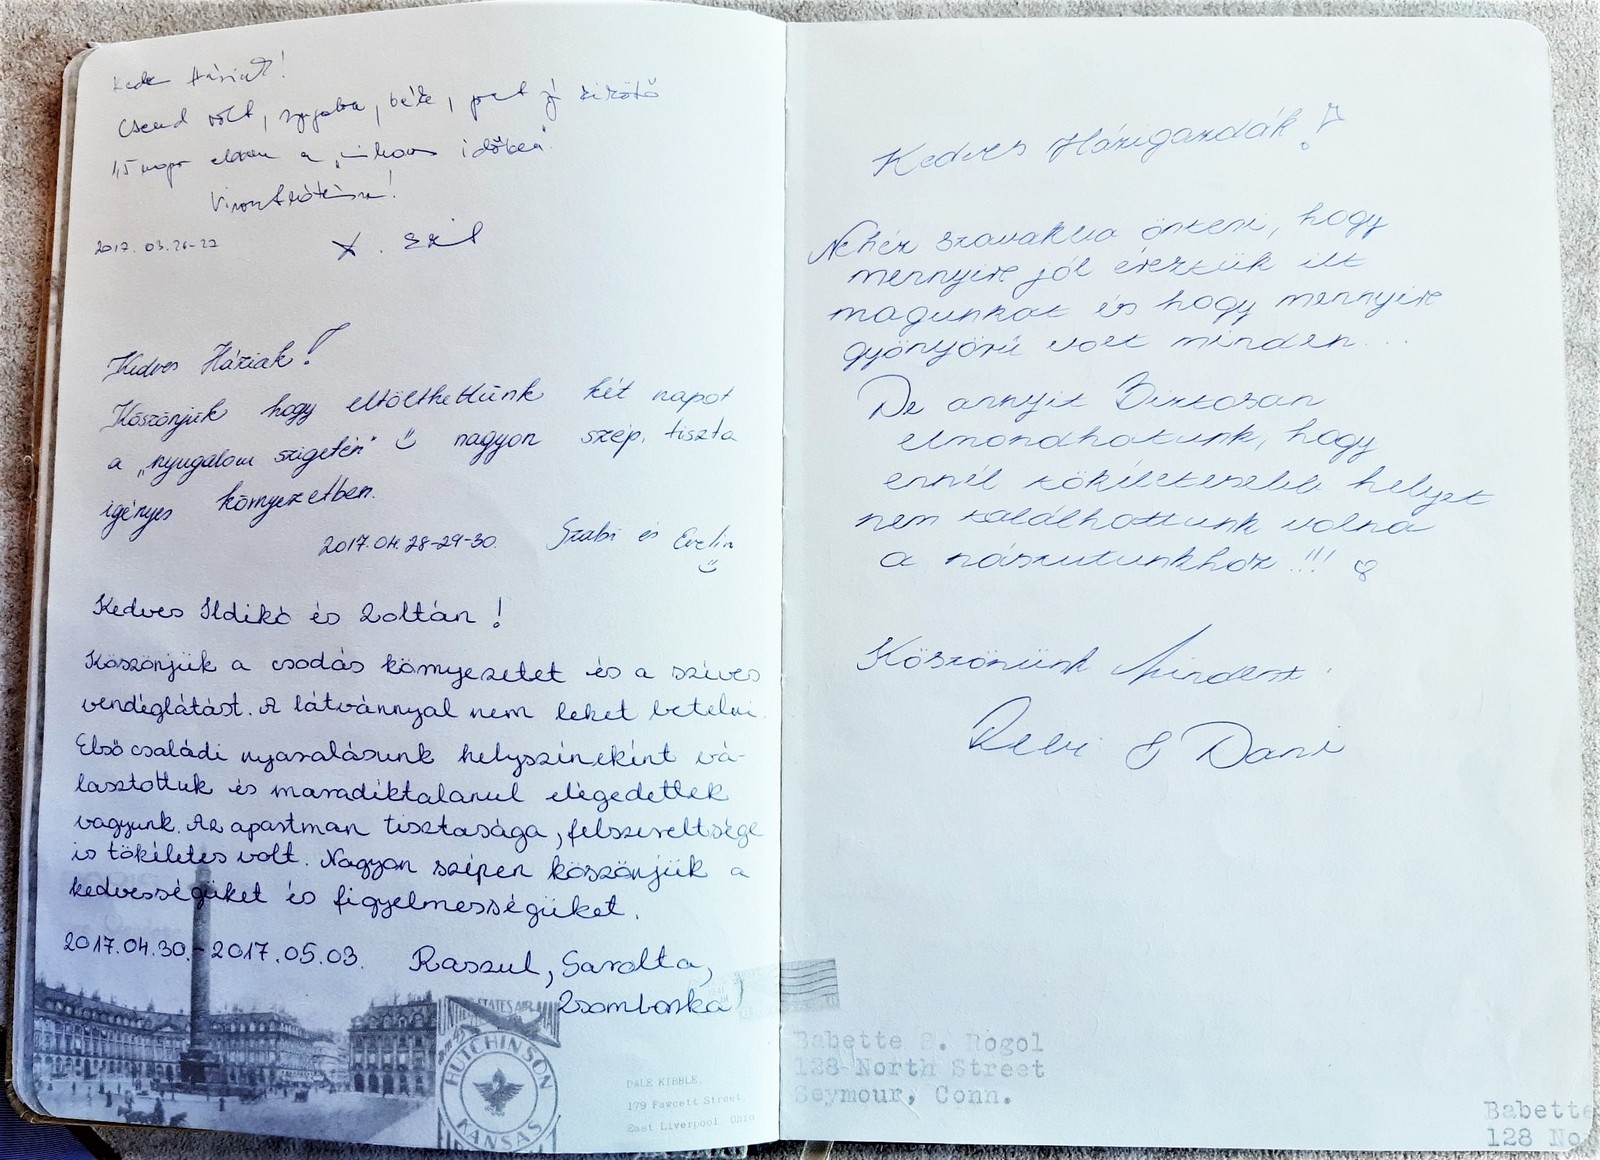 Kedves Háziak!
Csend volt, nyugalom, béke,
1,5 napra a " időben"
Viszontlátásra!
2017. 03. 26-27
Kedves Háziak!
Köszönjük hogy eltölthettünk két napot
a "nyugalom szigetén" nagyon szép, tiszta
igényes környezetben.
2017.04.28-29-30. Szabi és Evelin
Kedves Ildikó és Zoltán!
Köszönjük a csodás környezetet és a szíves
vendéglátást. A látvánnyal nem lehet betelni.
Első családi nyaralásunk helyszíneként vá-
lasztottuk és maradéktalanul elégedettek
vagyunk. Az apartman tisztasága, felszereltsége
is tökéletes volt. Nagyon szépen köszönjük a
kedvességüket és figyelmességüket.
2017.04.30.-2017.05.03. Raszul, Sarolta,
Zsomborka
UNITED STATES AIR MAIL
HUTCHINSON
KANSAS
DALE KIBBLE.
179 Fawcett Street,
East Liverpool Ohio
Kedves Házigazdák!
Nehéz szavakba önteni, hogy
mennyire jól éreztük itt
magunkat és hogy mennyire
gyönyörű volt minden...
De annyit Biztosan
elmondhatunk, hogy
ennél tökéletesebb helyet
nem találhattunk volna
a nászutunkhoz!!!
Köszönünk Mindent!
Rebi & Dani
Babette S. Rogol
128 North Street
Seymour, Conn.
Babette
128 No